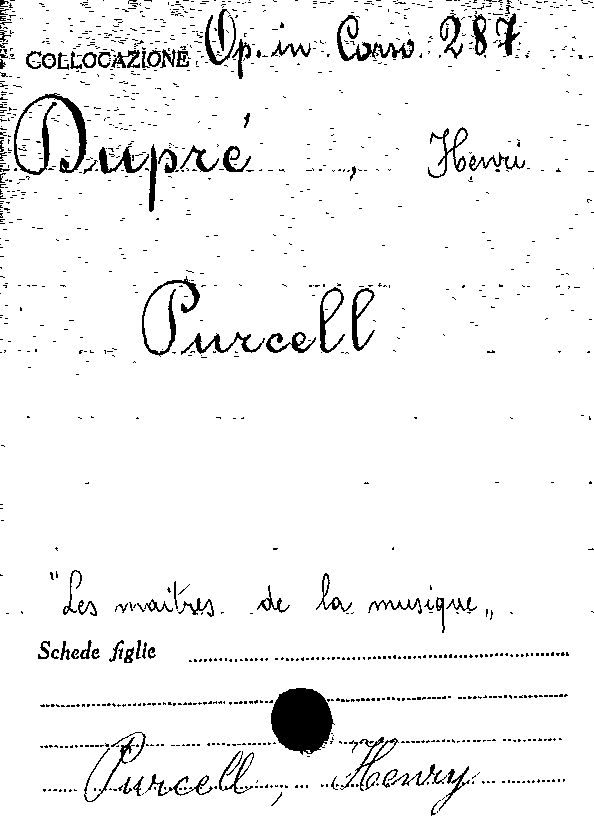 COLLOCAZIONE Op. in Corso. 287
Dupré, Henri
Purcell
"Les maitres de la musique„
Schede figlie
Purcell, Henry